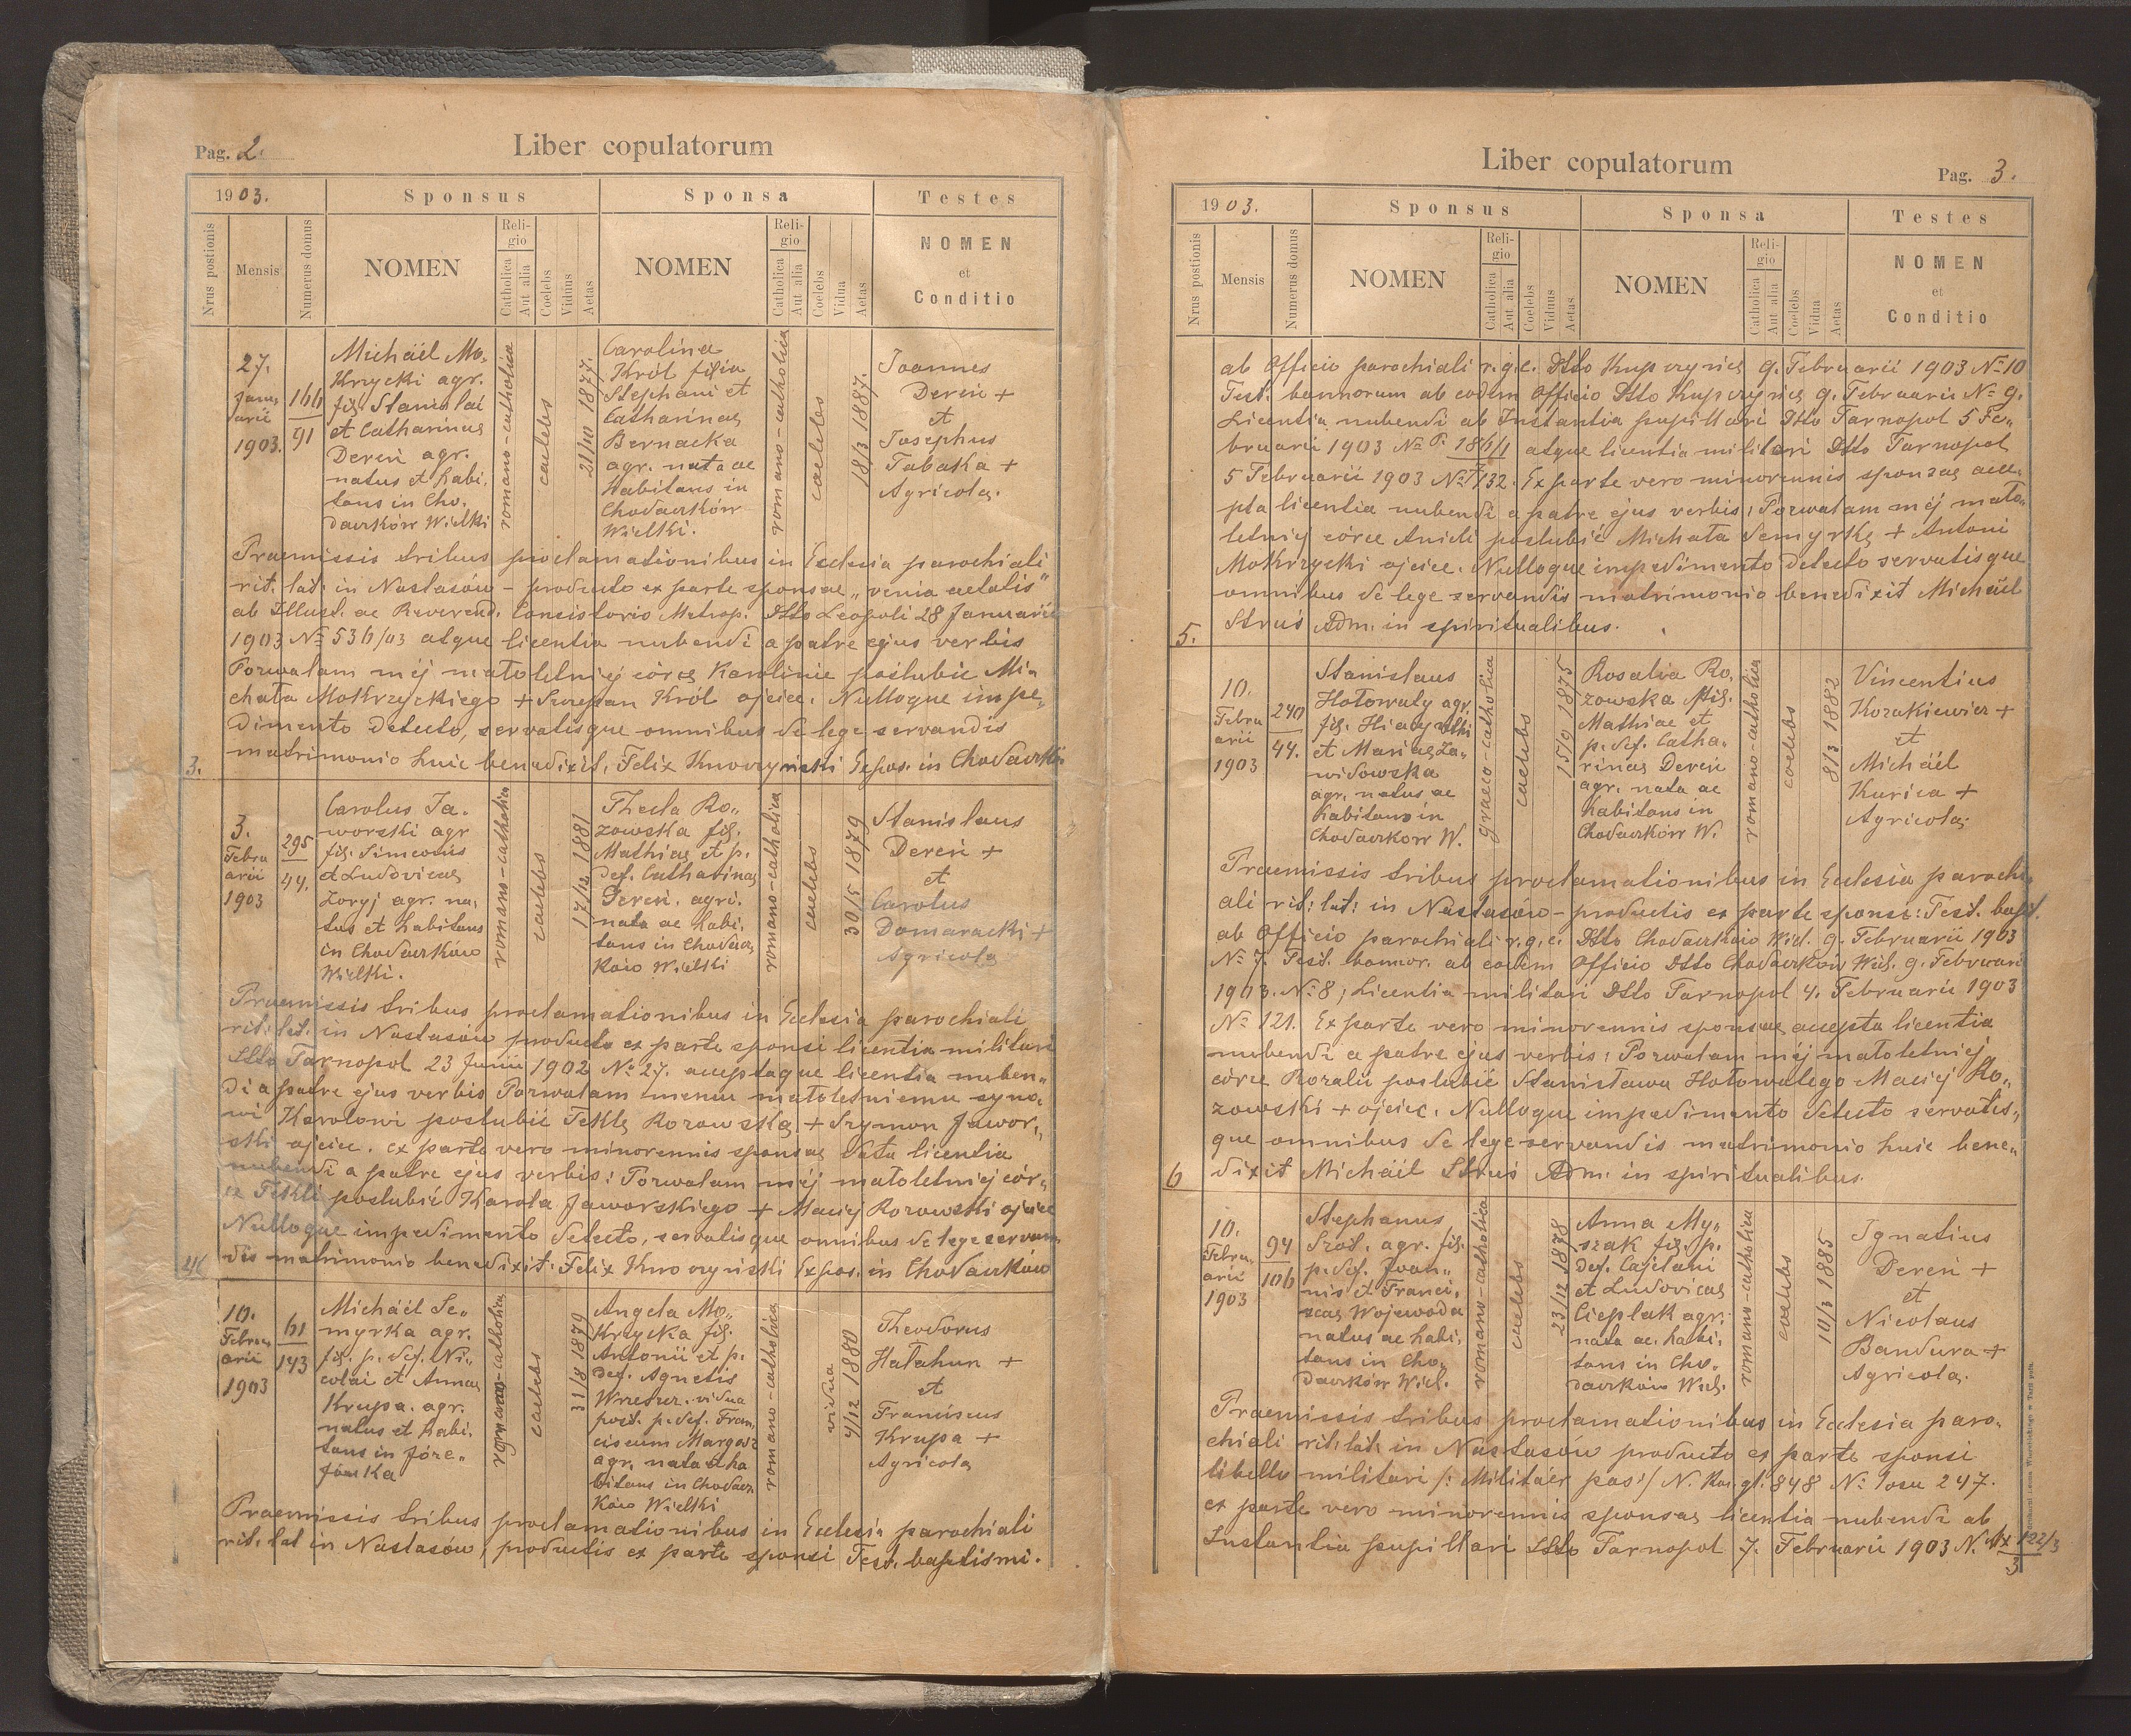 Pag. 2.
Liber copulatorum
1903.
Sponsus
Sponsa
Testes
Nrus postionis
Mensis
Numerus domus
NOMEN
Religio
Catholica
Aut alia
Coelebs
Viduus
Aetas
NOMEN
Religio
Catholica
Aut alia
Coelebs
Vidua
Aetas
NOMEN
et
Conditio
27.
Janu
arii
1903.
166
91
Michäel Mo-
krzycki agr.
fil. Stanislai
et Catharinae
Dereń agr.
natus et habi,
tans in Cho,
daczków Wielki
romano-catholica
caelebs
21/10 1877.
Carolina
Król filia
Stephani et
Catharinae
Bernacka
agr. nata ac
habitans in
Chodaczków
Wielki.
romano-catholica
caelebs
18/3 1887.
Joannes
Dereń +
et
Josephus
Tabaka +
Agricolae.
Praemissis tribus proclamationibus in Ecclesia parochiali
rit. lat. in Nastasów - producto ex parte sponsae „venia aetatis"
ab Illust. ac Reverend. Consistorio Metrop. Dtto Leopoli 28 Januarii
1903 No 536/03 atque licentia nubendi a patre ejus verbis
Pozwalam mej małoletniej córce Karolinie poślubić Mi-
chała Mokrzyckiego + Szczepan Król ojciec. Nulloque impe-
dimento detecto, servatisque omnibus de lege servandis
3. matrimonio huic benedixit, Felix Kwoczyński Expos. in Chodaczków
3.
Febru
arii
1903
295
44.
Carolus Ja-
worski agr
fil. Simeonis
et Ludovicae
Zoryj agr. na,
tus et habitans
in Chodaczków
Wielki.
romano-catholica
caelebs
17/12 1881
Thecla Ro-
zowska fil.
Mathiae et p.
def. Catharinae
Dereń. agri.
nata ac habi,
tans in Chodacz
ków Wielki
romano-catholica
caelebs
30/5 1879
Stanislaus
Dereń +
et
Carolus
Domaracki +
Agricolae
Praemissis tribus proclamationibus in Ecclesia parochiali
rit. lat. in Nastasów producta ex parte sponsi licentia militari
Dtto Tarnopol 23 Junii 1902 No 27. acceptaque licentia nuben-
di a patre ejus verbis Pozwalam memu małoletniemu syno-
wi Karolowi poślubić Teklę Rozowską + Szymon Jawor-
ski ojciec. ex parte vero minorennis sponsae data licentia
nubendi a patre ejus verbis: Pozwalam mej małoletniej cór-
ce Tekli poślubić Karola Jaworskiego + Maciej Rozowski ojciec
Nulloque impedimento detecto, servatisque omnibus de lege servan-
4. dis matrimonio benedixit: Felix Kwoczyński Expos. in Chodaczków
10.
Februa
arii
1903
61
143
Michäel Se-
myrka agr.
fil. p. def. Ni-
colai et Annae
Krupa. agr.
natus et habi,
tans in Józe-
fówka
caelebs
31/8 1879
Angela Mo-
krzycka fil.
Antonii et p.
def. Agnetis
vidua
post. p. def. Fran,
ciscum Margasz
agr. nata et ha
bitans in Chodacz
ków Wielki
romano-catholica
vidua
4/12 1880
Theodorus
Hałahun +
et
Franciscus
Krupa +
Agricolae
Praemissis tribus proclamationibus in Ecclesia parochiali
rit. lat in Nastasów, productis ex parte sponsi Test. baptismi.
Liber copulatorum
Pag. 3.
1903.
Sponsus
Sponsa
Testes
Nrus postionis
Mensis
Numerus domus
NOMEN
Religio
Catholica
Aut alia
Coelebs
Viduus
Aetas
NOMEN
Religio
Catholica
Aut alia
Coelebs
Vidua
Aetas
NOMEN
et
Conditio
ab Officio parochiali r.g.c. Dtto Kupczyńce 9. Februarii 1903 No 10
Test. bannorum ab eodem Officio Dtto Kupczyńce 9. Februarii No 9.
Licentia nubendi ab Instantia pupillari Dtto Tarnopol 5 Fe-
bruarii 1903 No P. 186/1 atque licentia militari Dtto Tarnopol
5 Februarii 1903 No 132. Ex parte vero minorennis sponsae acce-
pta licentia nubendi a patre ejus verbis: Pozwalam mej mało-
letniej córce Anieli poślubić Michała Semyrkę + Antoni
Mokrzycki ojciec. Nulloque impedimento detecto servatisque
omnibus de lege servandis matrimonio benedixit Michäel
5. Struś Adm. in spiritualibus.
10.
Febru
arii
1903
240
44.
Stanislaus
Hołowaty agr.
et Mariae Za-
widowska
agr. natus ac
habitans in
Chodaczków W.
graeco-catholica
caelebs
15/9 1875
Rosalia Ro,
zowska fil.
Mathiae et
p. def. Catha-
rinae Dereń
agr. nata ac
habitans in
Chodaczków W.
romano-catholica
caelebs
8/3 1882
Vincentius
Kozakiewicz +
et
Michäel
Kurica +
Agricolae
Praemissis tribus proclamationibus in Ecclesia parochi-
ali rit: lat: in Nastasów - productis ex parte sponsi: Test. bapt.
ab Officio parochiali r.g.c. Dtto Chodaczków Wiel. 9. Februarii 1903
No 7. Test. bannor. ab eodem Officio Dtto Chodaczków Wiel. 9. Februarii
1903. No 8, Licentia militari Dtto Tarnopol 4. Februarii 1903
No 121. Ex parte vero minorennis sponsae accepta licentia
nubendi a patre ejus verbis: Pozwalam mej małoletniej
córce Rozalii poślubić Stanisława Hołowatego Maciej Ro-
zowski + ojciec. Nulloque impedimento detecto servatis-
que omnibus de lege servandis matrimonio huic bene-
6 dixit Michäel Struś Adm. in spiritualibus.
10.
Febru-
arii
1903
94
106
Stephanus
Szot. agr. fil.
p. def. Joan-
nis et Franci,
scae Wojewoda
natus ac habi,
tans in Cho-
daczków Wiel.
romano-catholica
caelebs
23/12 1878
Anna My-
szak fil. p.
def. Cajetani
et Ludovicae
Cieplak agr.
nata ac. habi,
tans in Cho-
daczków Wiel.
romano-catholica
caelebs
10/3 1885
Ignatius
Dereń +
et
Nicolaus
Bandura +
Agricolae.
Praemissis tribus proclamationibus in Ecclesia paro-
chiali rit. lat. in Nastasów producto ex parte sponsi
libello militari /: Militäer pas :/ N. 848 No losu 247.
ex parte vero minorennis sponsae licentia nubendi ab
Instantia pupillari Dtto Tarnopol 7. Februarii 1903 N. 122/3
3